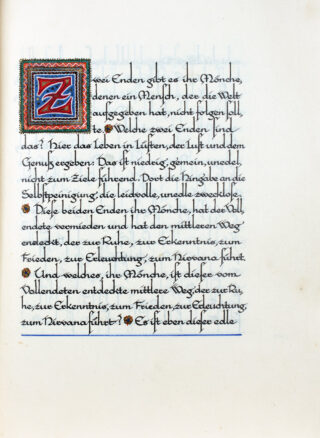 Zwei Enden gibt es ihr Mönche,
denen ein Mensch, der die Welt
aufgegeben hat, nicht folgen soll,
te. Welche zwei Enden sind
das? Hier das Leben in Lüsten, der Lust und dem
Genuß ergeben: Das ist niedrig, gemein, unedel,
nicht zum Ziele führend. Dort die Hingabe an die
Selbstpeinigung, die leidvolle, unedle, zwecklose.
Diese beiden Enden ihr Mönche, hat der Voll,
endete vermieden und hat den mittleren Weg
entdeckt, der zur Ruhe, zur Erkenntnis, zum
Frieden, zur Erleuchtung, zum Nirvana führt.
Und welches, ihr Mönche, ist dieser vom
Vollendeten entdeckte mittlere Weg, der zur Ru,
he, zur Erkenntnis, zum Frieden, zur Erleuchtung,
zum Nirvana führt? Es ist eben dieser edle